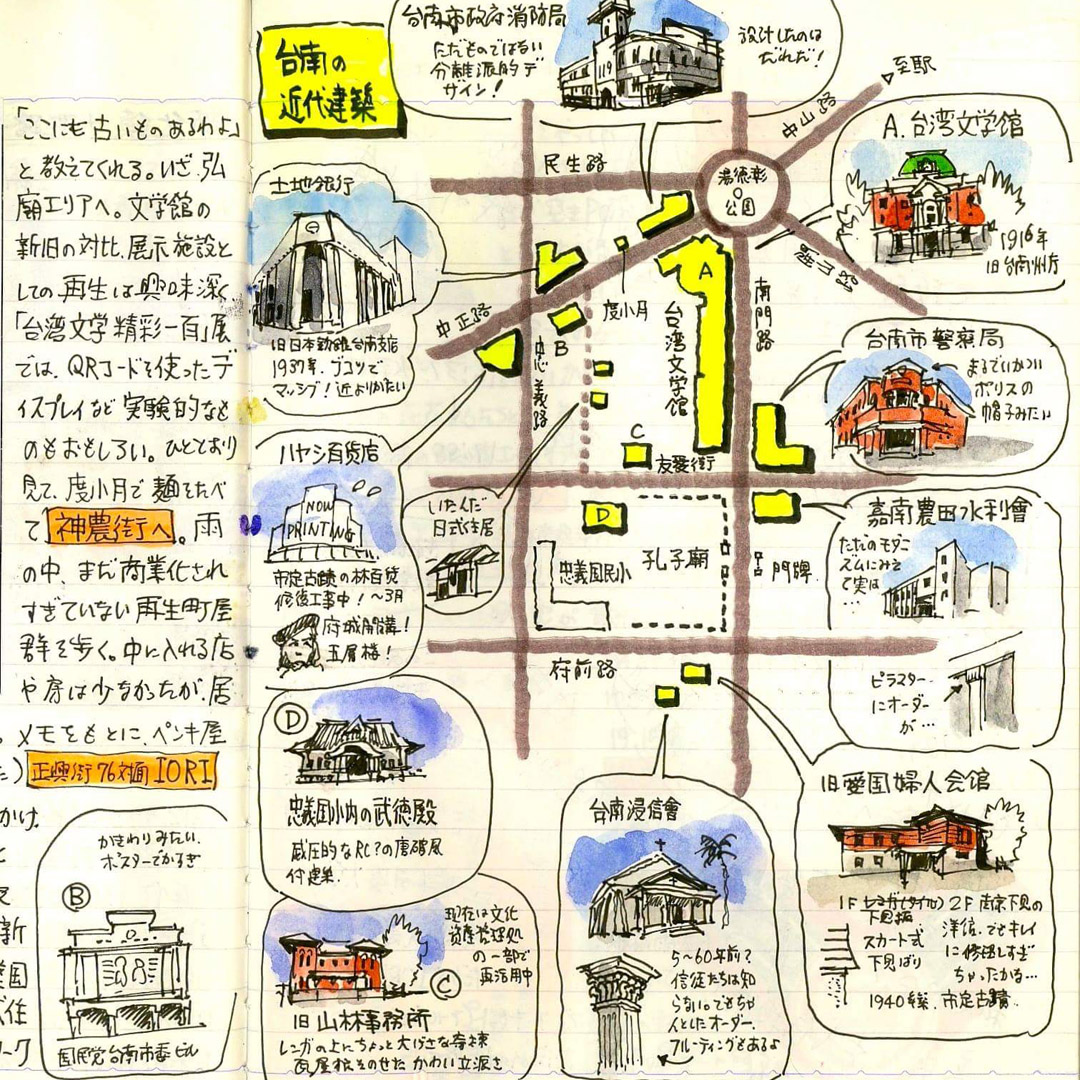 台南の
近代建築
台南市政府消防局
ただものではない
分離派的デ
サイン！
設計したのは
だれだ！
119
至駅
中山路
民生路
湯徳彰
公園
A. 台湾文学館
1916年
旧台南州庁
「ここにも古いものあるわよ」
と教えてくれる。いざ、弘
廟エリアへ。文学館の
新旧の対比、展示施設と
しての再生は興味深く
「台湾文学精彩一百」展
では、QRコードを使ったデ
ィスプレイなど実験的なも
のもおもしろい。ひととおり
見て、度小月で麺をたべ
て神農街へ。雨
の中、まだ商業化され
すぎていない再生町屋
群を歩く。中に入れる店
や房は少なかったが、居
メモをもとに、ペンキ屋
正興街76対面 IORI
かけ.
土地銀行
旧日本勧銀台南支店
1937年. ブコツで
マッシブ！近よりがたい
中正路
忠義路
B
度小月
A
台湾文学館
南門路
C
友愛街
台南市警察局
まるでいかつい
ポリスの
帽子みたい
ハヤシ百貨店
NOW
PRINTING
市定古蹟の林百貨
修復工事中！〜3月
府城開講！
五層楼！
いたんだ
日式住居
D
忠義国民小
孔子廟
門牌
府前路
嘉南農田水利會
ただのモダニ
ズムにみえ
て実は
…
ピラスター
にオーダー
が…
D
忠義国小内の武徳殿
威圧的なRC？の唐破風
付建築.
かきわりみたい.
ポスターでかすぎ
B
国民党台南市委ビル
現在は文化
資産管理処
の一部で
再活用中
C
旧山林事務所
レンガの上にちょっと大げさな寄棟
瓦屋根をのせた かわいい立派さ
台南浸信會
5〜60年前？
信徒たちは知
らない。でもちゃ
んとしたオーダー.
フルーティングもあるよ
旧愛国婦人会館
1F
下見板
スカート式
下見ばり
2F 南京下見の
洋館. でもキレイ
に修復しすぎ
ちゃったかな…
1940年築. 市定古蹟.